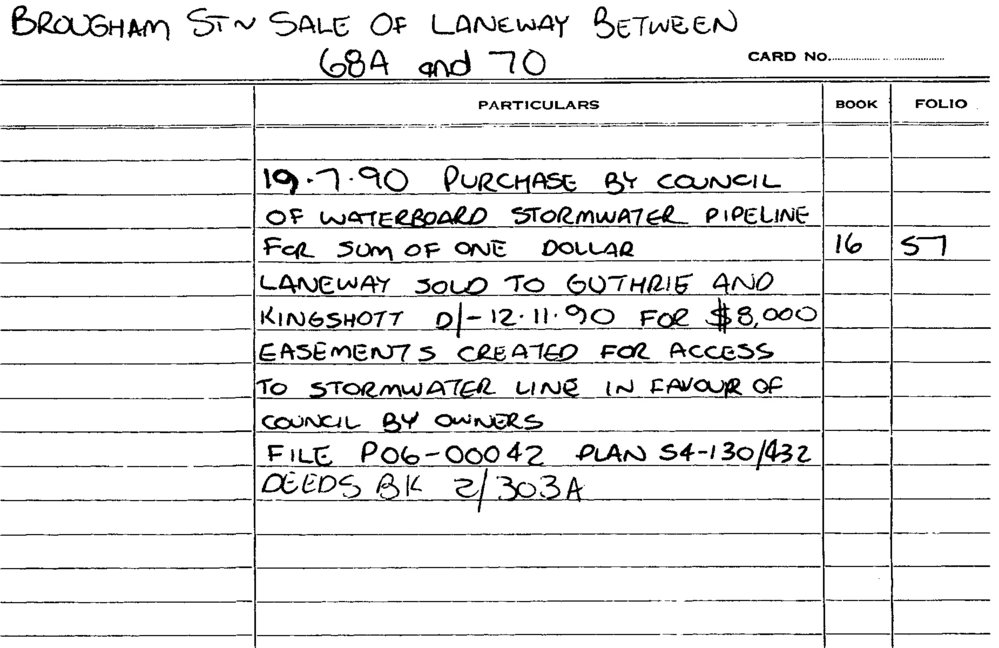 BROUGHAM ST ~ SALE OF LANEWAY BETWEEN
68A and 70
CARD No.
PARTICULARS BOOK FOLIO
19.7.90 PURCHASE BY COUNCIL
OF WATERBOARD STORMWATER PIPELINE
FOR SUM OF ONE DOLLAR 16 57
LANEWAY SOLD TO GUTHRIE AND
KINGSHOTT D/- 12.11.90 FOR $8,000
EASEMENTS CREATED FOR ACCESS
TO STORMWATER LINE IN FAVOUR OF
COUNCIL BY OWNERS
FILE P06-00042 PLAN S4-130/432
DEEDS BK 2/303A